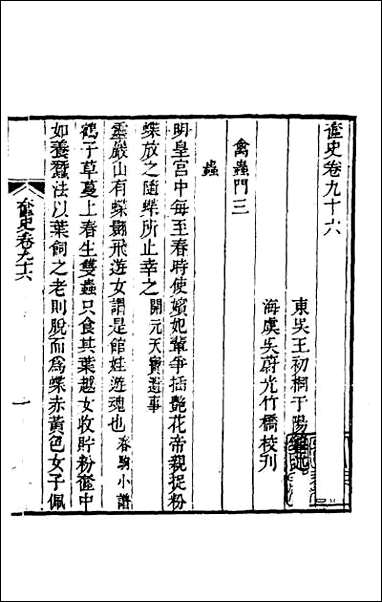 奩史卷九十六
東吳王初桐于陽
海虞吳蔚光竹橋校刊
禽蟲門三
蟲
明皇宮中每至春時使嬪妃輩爭插艷花帝親捉粉
蝶放之隨蝶所止幸之開元天寶遺事
靈巖山有蝶翾飛遊女謂是館娃遊魂也春駒小譜
鶴子草蔓上春生雙蟲只食其葉越女收貯粉奩中
如養蠶法以葉飼之老則脫而爲蝶赤黃色女子佩
奩史卷九十六
一